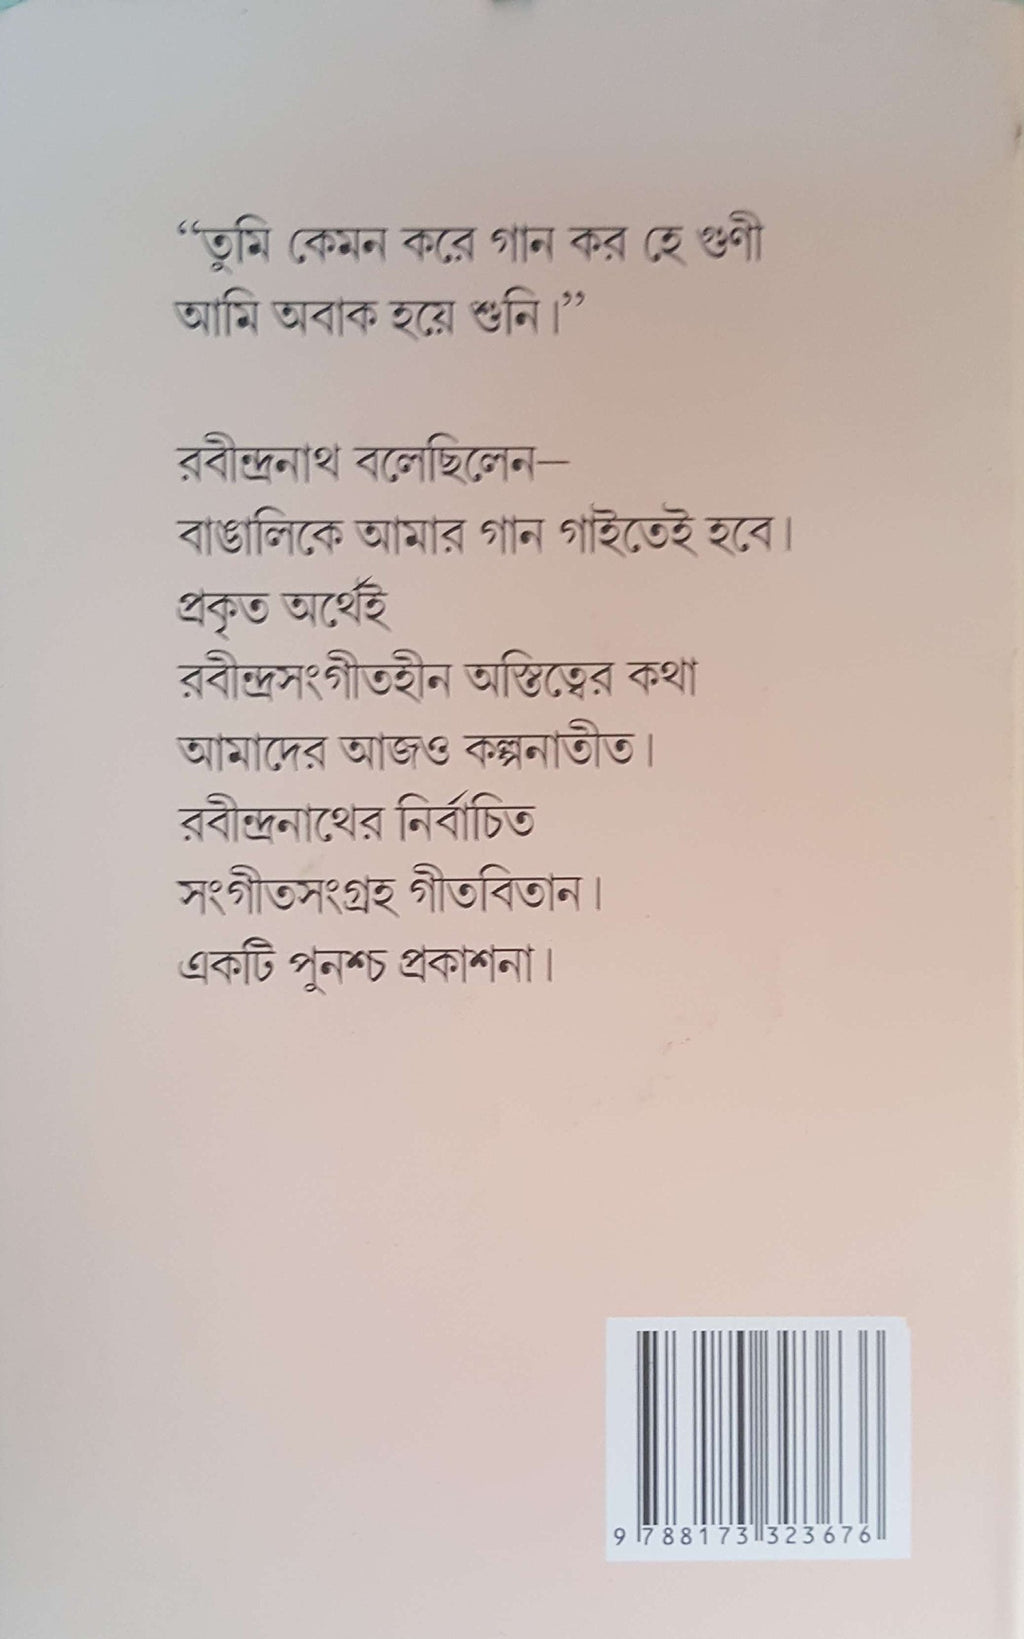 “তুমি কেমন করে গান কর হে গুণী
আমি অবাক হয়ে শুনি।”
রবীন্দ্রনাথ বলেছিলেন—
বাঙালিকে আমার গান গাইতেই হবে।
প্রকৃত অর্থেই
রবীন্দ্রসংগীতহীন অস্তিত্বের কথা
আমাদের আজও কল্পনাতীত।
রবীন্দ্রনাথের নির্বাচিত
সংগীতসংগ্রহ গীতবিতান।
একটি পুনশ্চ প্রকাশনা।
9 788173 323676